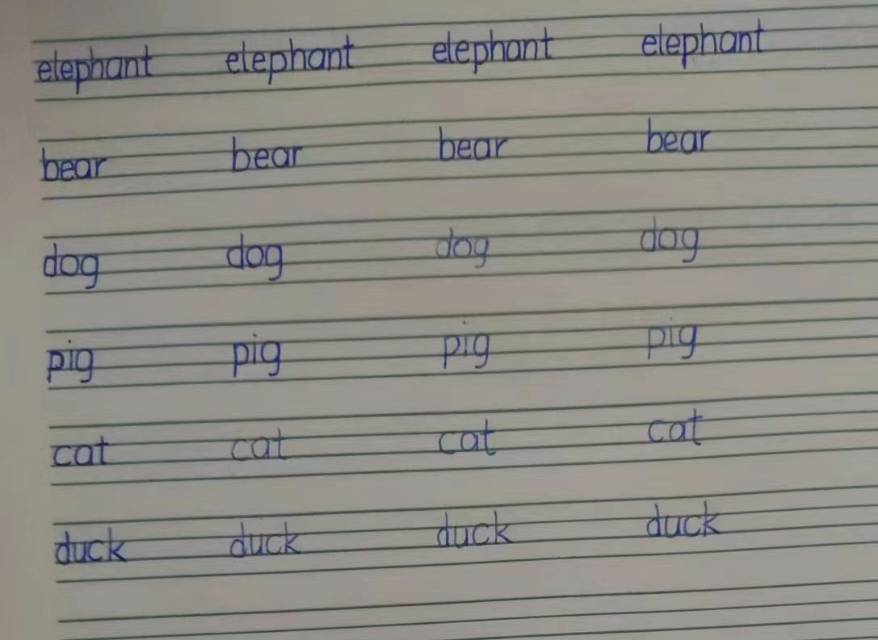 elephant elephant elephant elephant
bear bear bear bear
dog dog dog dog
pig pig pig pig
cat cat cat cat
duck duck duck duck